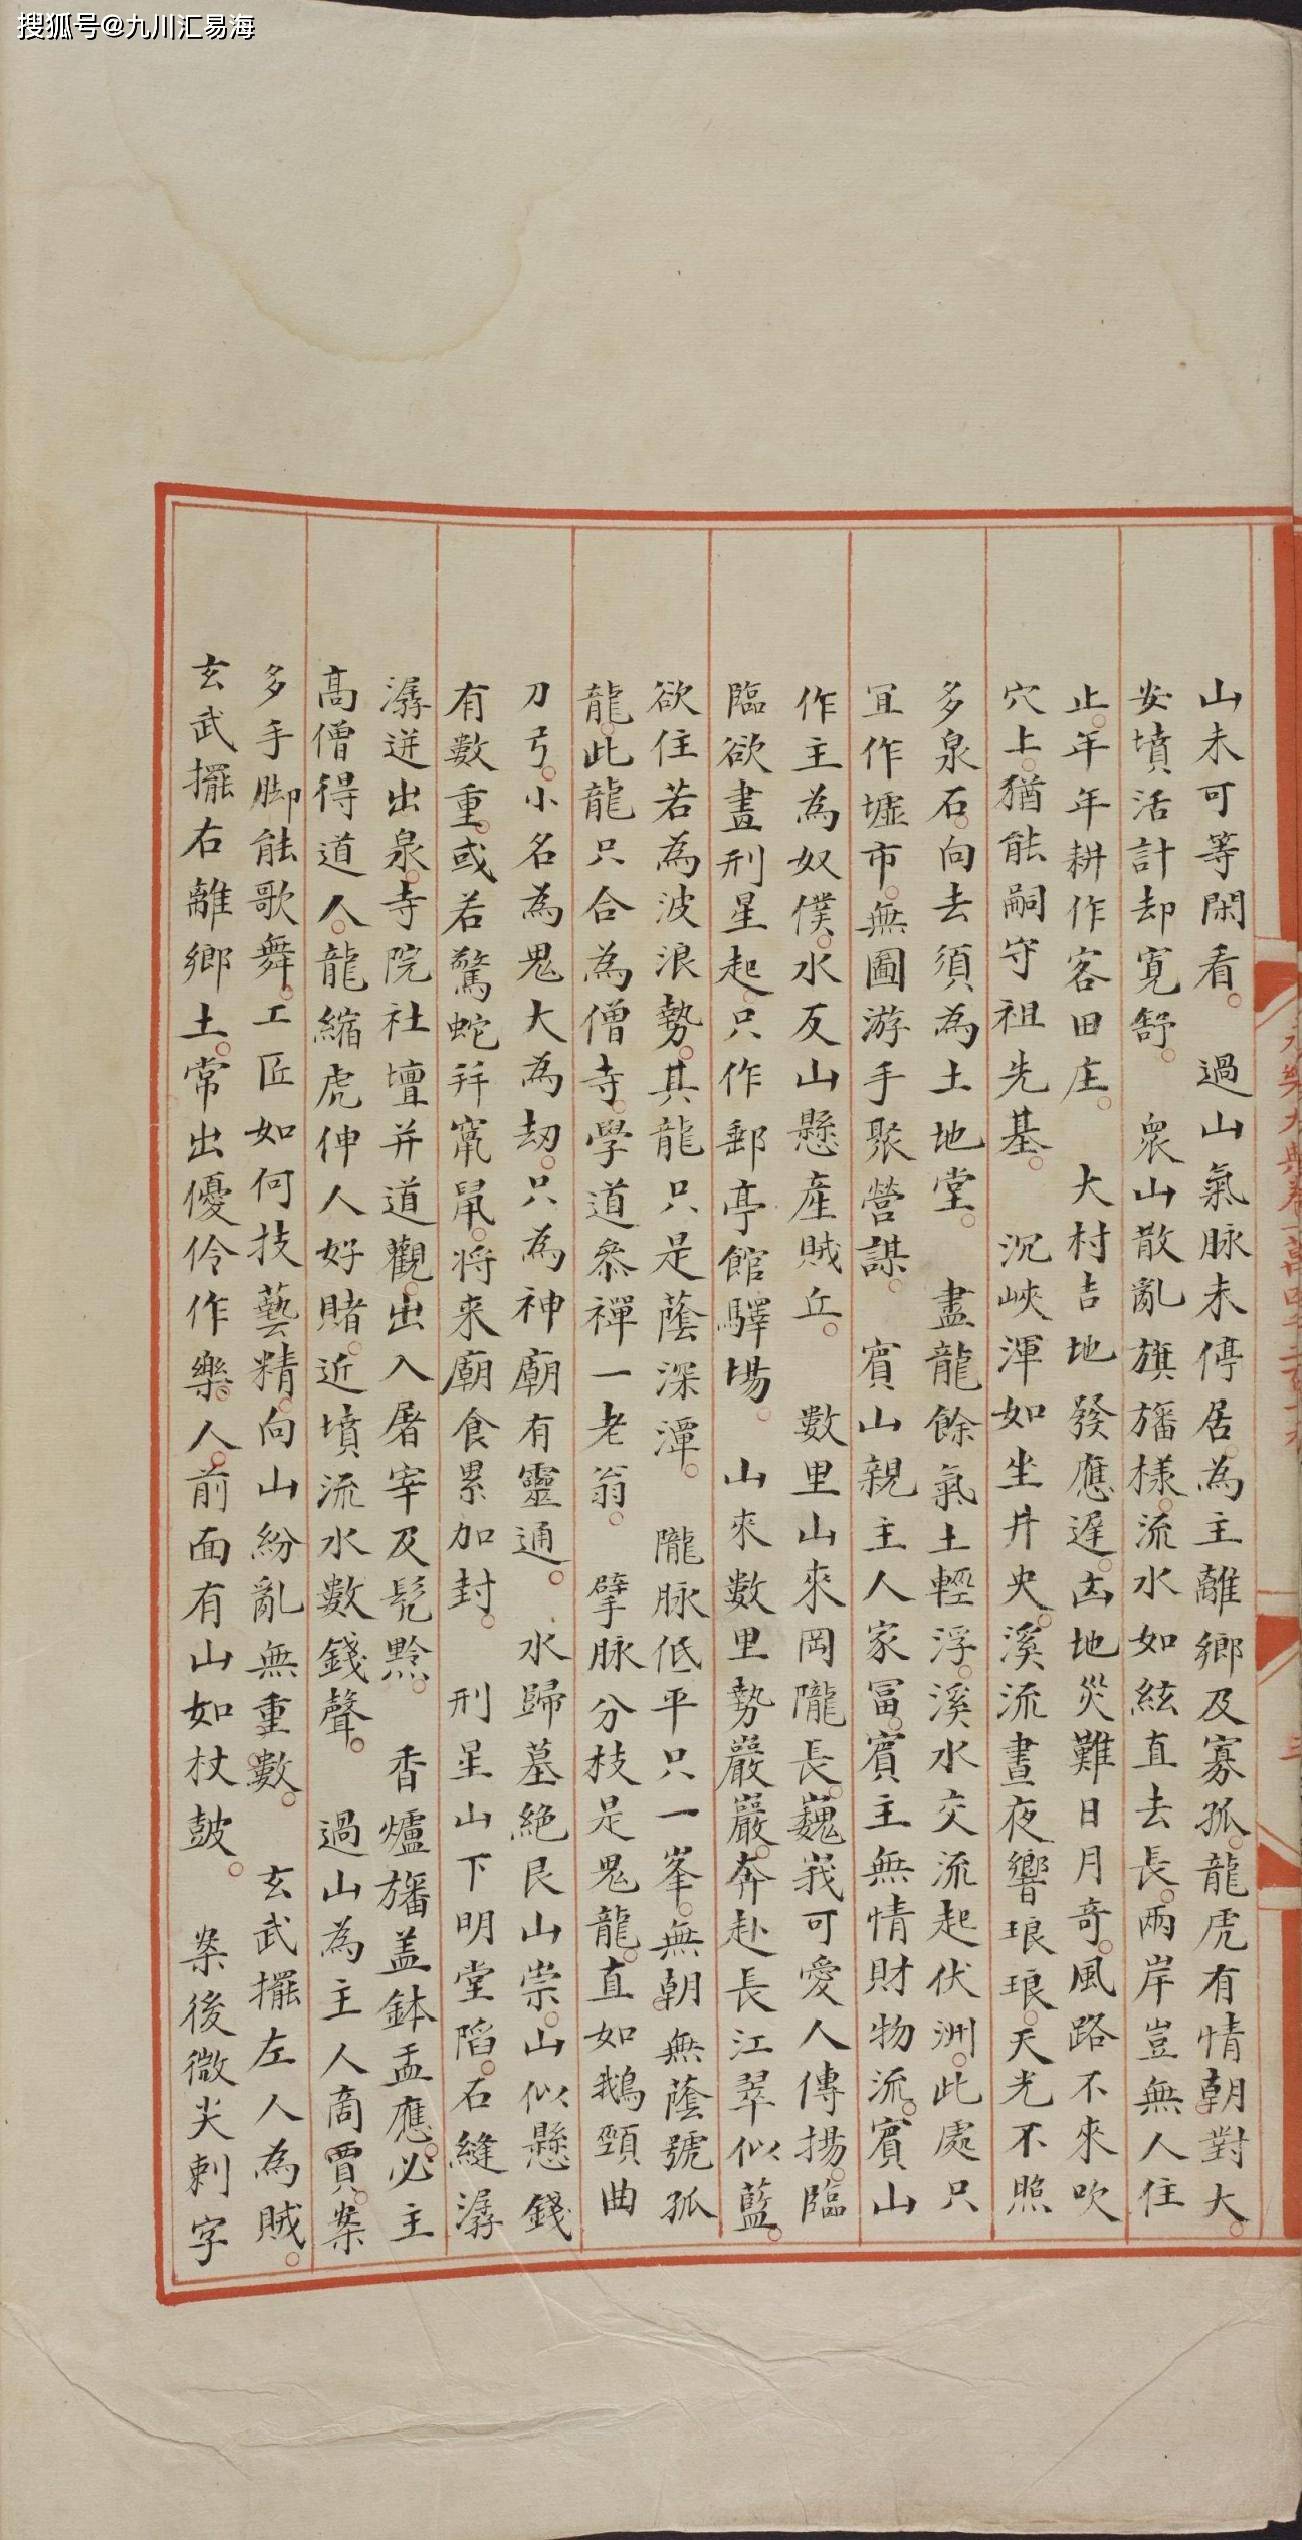 搜狐号@九川汇易海
山未可等閑看。過山氣脉未停居。為主離鄉及寡孤。龍虎有情朝對大。
安墳活計却寬舒。衆山散亂旗旛樣。流水如絃直去長。兩岸豈無人住
止。年年耕作客田庄。大村吉地發應遲。凶地災難日月奇。風路不來吹
穴上。猶能嗣守祖先基。沉峽渾如坐井央。溪流晝夜響琅琅。天光不照
多泉石。向去須為土地堂。盡龍餘氣土輕浮。溪水交流起伏洲。此處只
宜作墟市。無圖游手聚營謀。賓山親主人家冨。賓主無情財物流。賓山
作主為奴僕。水反山懸産賊丘。數里山來岡隴長。巍峩可愛人傳揚。臨
臨欲盡刑星起。只作郵亭館驛場。山來數里勢巖巖。奔赴長江翠似藍。
欲住若為波浪勢。其龍只是蔭深潭。隴脉低平只一峯。無朝無蔭號孤
龍。此龍只合為僧寺。學道叅禪一老翁。擘脉分枝是鬼龍。直如鵝頸曲
刀弓。小名為鬼大為刼。只為神廟有靈通。水歸墓絶艮山崇。山似懸錢
有數重。或若驚蛇并竄鼠。将来廟食累加封。刑星山下明堂陷。石縫潺
潺迸出泉。寺院社壇并道觀。出入屠宰及髠黥。香爐旛盖鉢盂應。必主
高僧得道人。龍縮虎伸人好賭。近墳流水數錢聲。過山為主人商賈。案
多手脚能歌舞。工匠如何技藝精。向山紛亂無重數。玄武擺左人為賊。
玄武擺右離鄉土。常出優伶作樂人。前面有山如杖鼓。案後微尖刺字